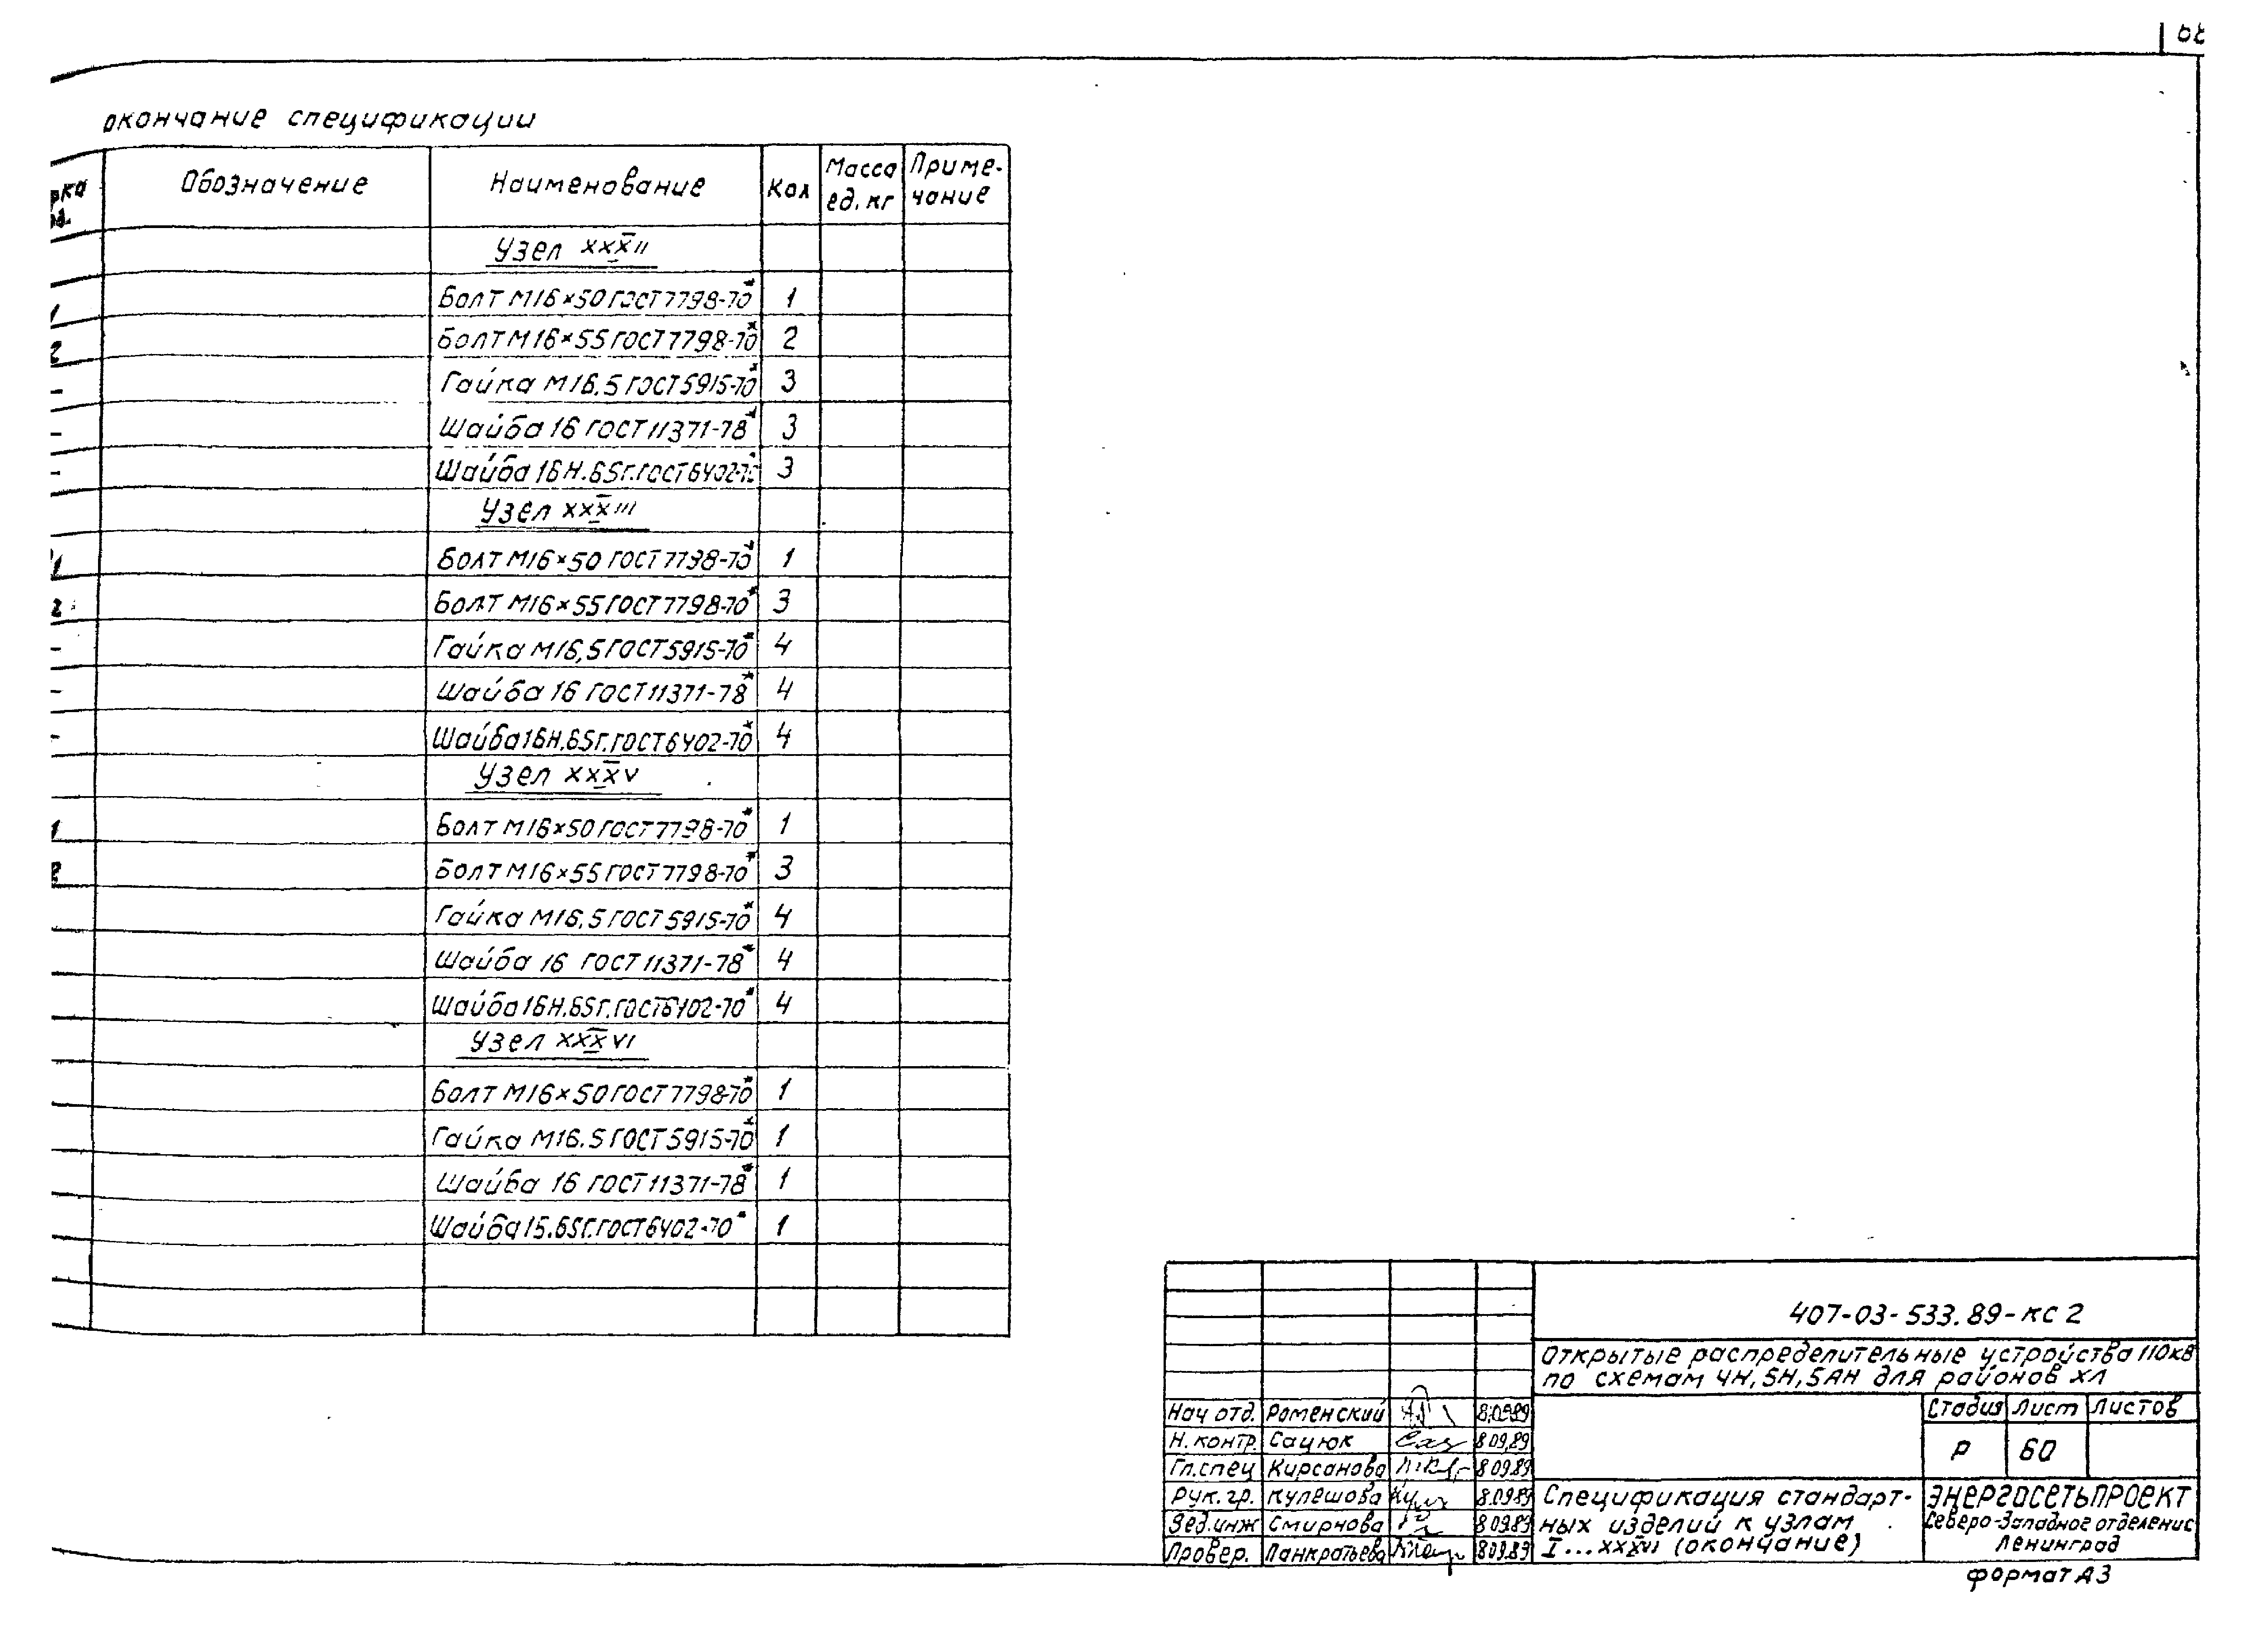 окончание спецификации
Обозначение Наименование Кол Масса ед. кг Приме-чание
Узел XXXII
1 Болт М16×50 ГОСТ 7798-70* 1
2 Болт М16×55 ГОСТ 7798-70* 2
- Гайка М16.5 ГОСТ 5915-70* 3
- Шайба 16 ГОСТ 11371-78* 3
- Шайба 16Н.65Г.ГОСТ 6402-70* 3
Узел XXXIII
1 Болт М16×50 ГОСТ 7798-70* 1
2 Болт М16×55 ГОСТ 7798-70* 3
- Гайка М16,5 ГОСТ 5915-70* 4
- Шайба 16 ГОСТ 11371-78* 4
- Шайба 16Н.65Г.ГОСТ 6402-70* 4
Узел XXXV
1 Болт М16×50 ГОСТ 7798-70* 1
2 Болт М16×55 ГОСТ 7798-70* 3
Гайка М16.5 ГОСТ 5915-70* 4
Шайба 16 ГОСТ 11371-78* 4
Шайба 16Н.65Г.ГОСТ 6402-70* 4
Узел XXXVI
Болт М16×50 ГОСТ 7798-70* 1
Гайка М16.5 ГОСТ 5915-70* 1
Шайба 16 ГОСТ 11371-78* 1
Шайба 15.65Г.ГОСТ 6402-70* 1
407-03-533.89-КС 2
Открытые распределительные устройства 110кВ
по схемам 4Н, 5Н, 5АН для районов ХЛ
Нач отд. Роменский 8.09.89
Н. контр. Сацюк 8.09.89
Гл.спец Кирсанова 8.09.89
Рук. гр. Кулешова 8.09.89
Вед.инж Смирнова 8.09.89
Провер. Панкратьева 8.09.89
Стадия Лист Листов
Р 60
Спецификация стандарт-
ных изделий к узлам
I...XXXVI (окончание)
ЭНЕРГОСЕТЬПРОЕКТ
Северо-Западное отделение
Ленинград
формат А3